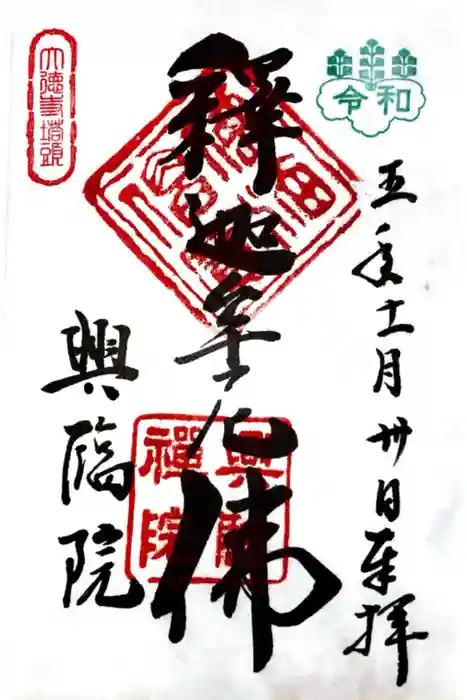 令和
五年十一月卅日奉拝
釋迦牟尼佛
興臨院
大徳寺塔頭
興臨禅院